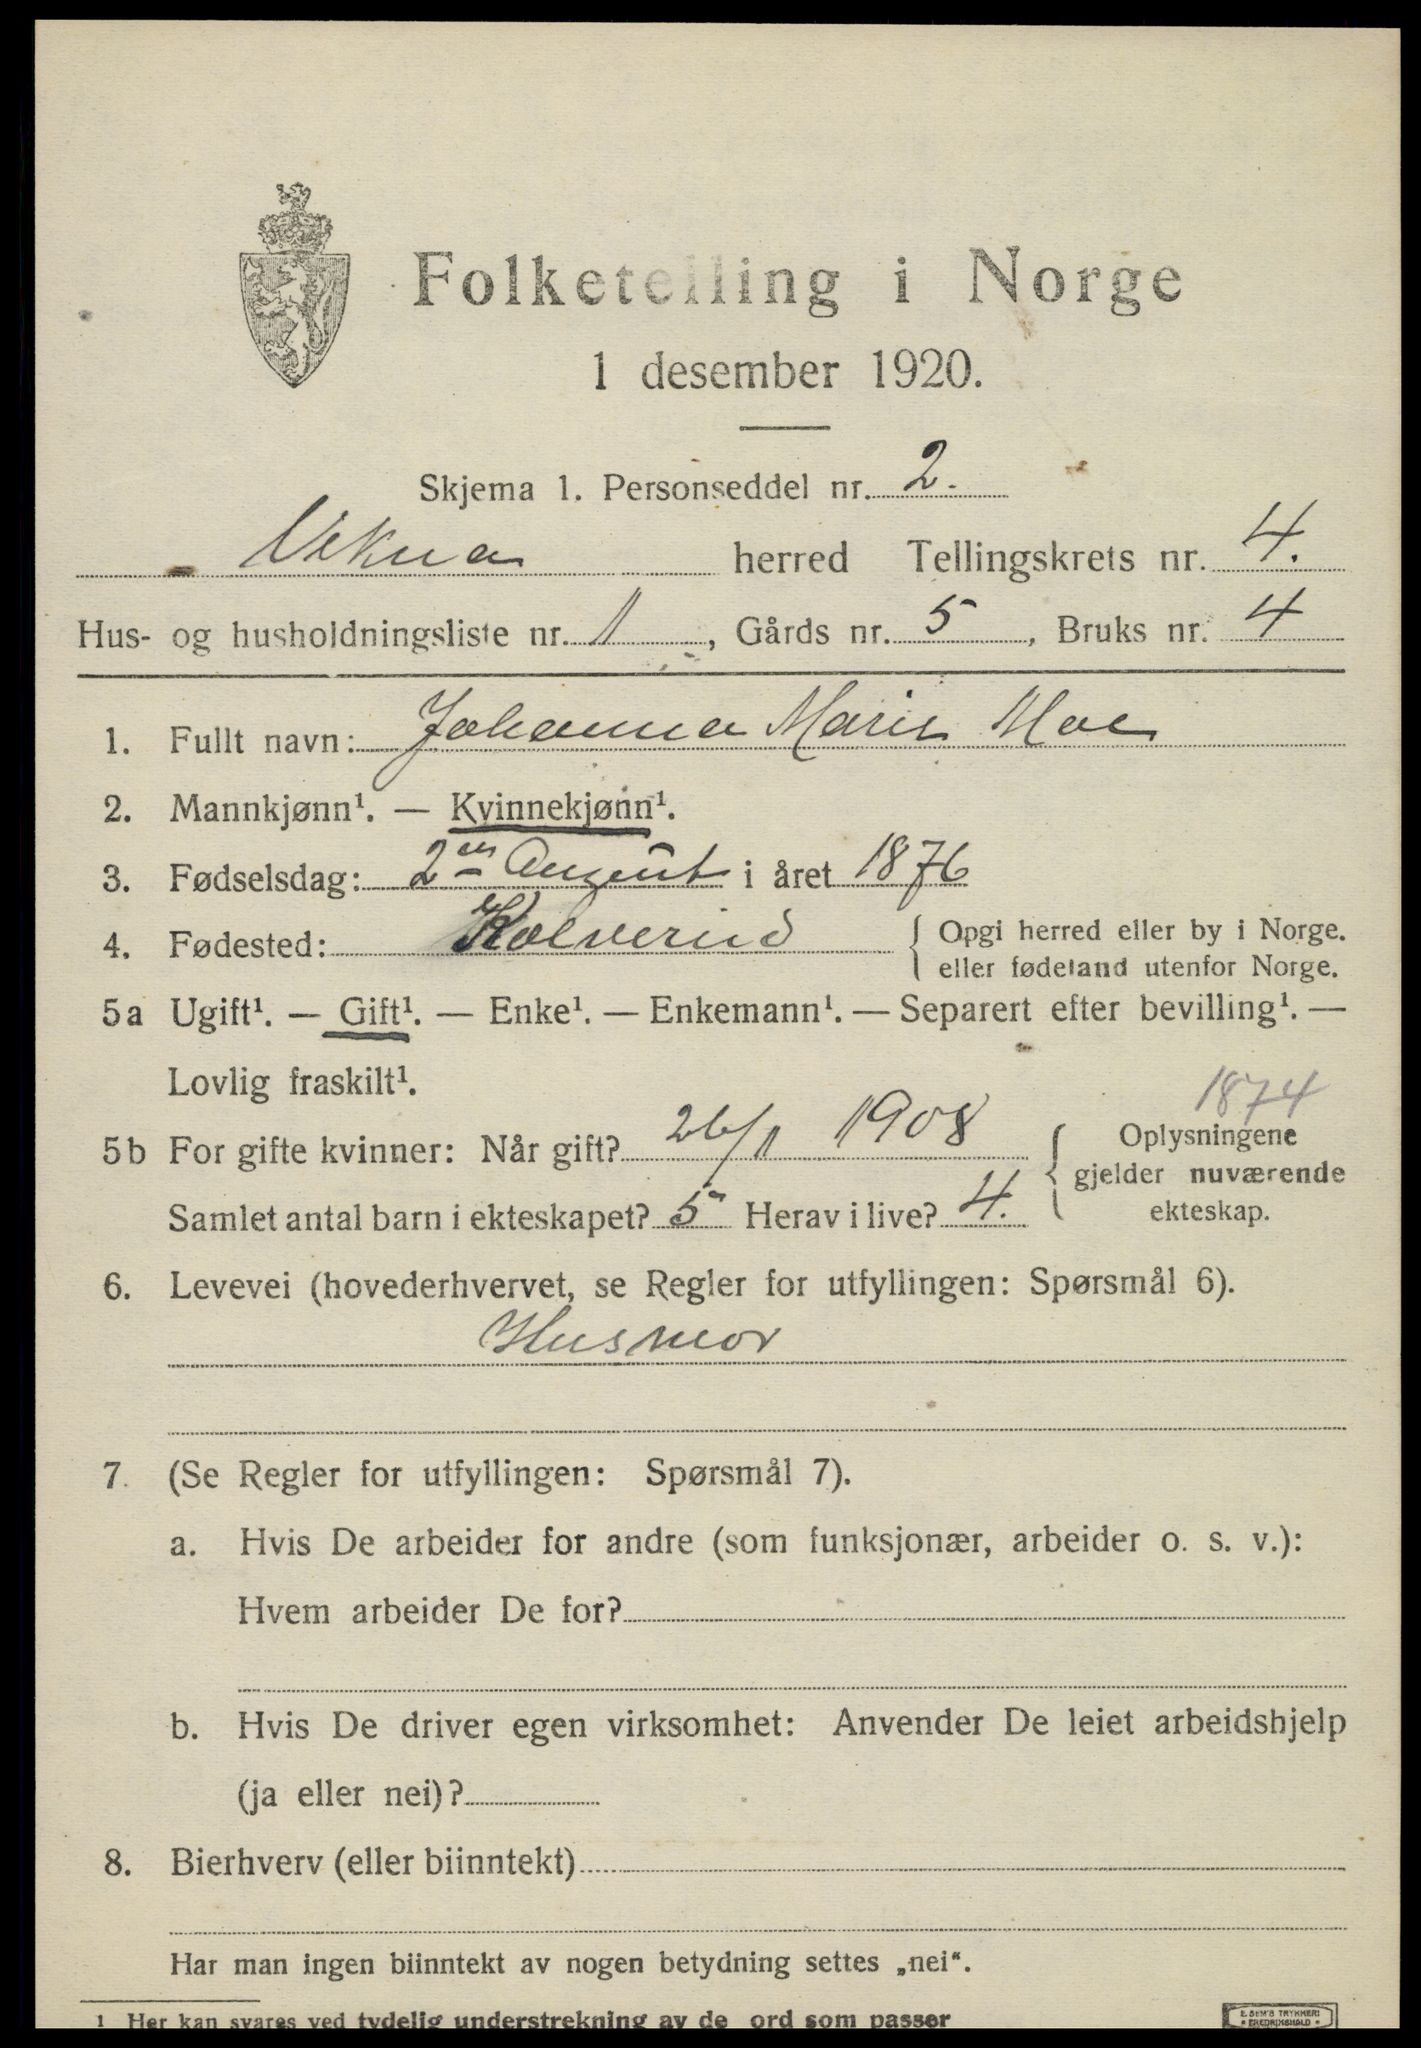 Folketelling i Norge
1 desember 1920.
Skjema 1. Personseddel nr. 2.
Vikna herred Tellingskrets nr. 4.
Hus- og husholdningsliste nr. 11, Gårds nr. 5, Bruks nr. 4
1. Fullt navn: Johanna Marie Moe
2. Mannkjønn¹. — Kvinnekjønn¹.
3. Fødselsdag: 2en August i året 1876
4. Fødested: Kolvereid { Opgi herred eller by i Norge.
eller fødeland utenfor Norge.
5a Ugift¹. — Gift¹. — Enke¹. — Enkemann¹. — Separert efter bevilling¹. —
Lovlig fraskilt¹.
1874
5b For gifte kvinner: Når gift? 26/11 1908 { Oplysningene
gjelder nuværende
Samlet antal barn i ekteskapet? 5 Herav i live? 4. ekteskap.
6. Levevei (hovederhvervet, se Regler for utfyllingen: Spørsmål 6).
Husmor
7. (Se Regler for utfyllingen: Spørsmål 7).
a. Hvis De arbeider for andre (som funksjonær, arbeider o. s. v.):
Hvem arbeider De for?
b. Hvis De driver egen virksomhet: Anvender De leiet arbeidshjelp
(ja eller nei)?
8. Bierhverv (eller biinntekt)
Har man ingen biinntekt av nogen betydning settes „nei“.
1 Her kan svares ved tydelig understrekning av de ord som passer
E. SEM'S TRYKKERI
FREDRIKSHALD